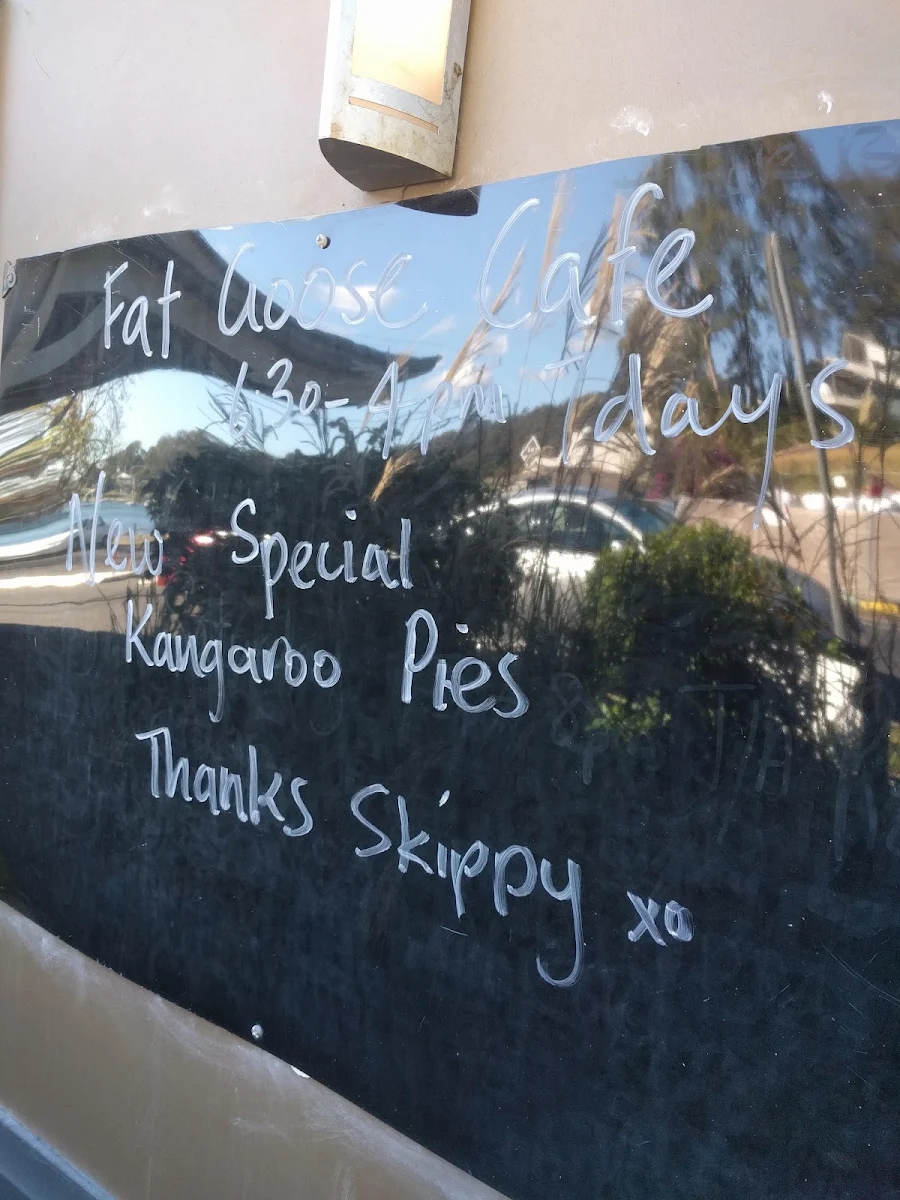 Fat Goose Cafe
630-4pm 7days
New Special
Kangaroo Pies
Thanks Skippy xo